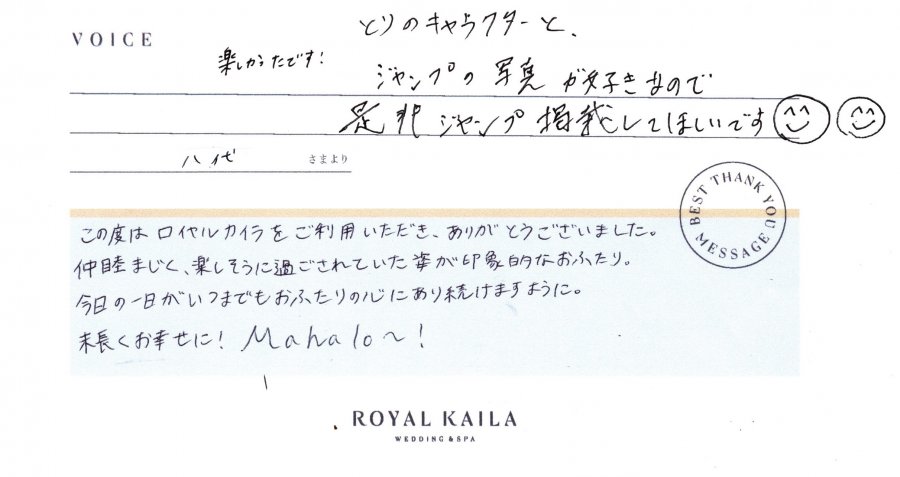 VOICE
とりのキャラクターと、
楽しかったです!
ジャンプの写真が好きなので
是非ジャンプ掲載してほしいです
八代 さまより
BEST THANK YOU MESSAGE
この度はロイヤルカイラをご利用いただき、ありがとうございました。
仲睦まじく、楽しそうに過ごされていた姿が印象的なおふたり。
今日の一日がいつまでもおふたりの心にあり続けますように。
末長くお幸せに! Mahalo〜!
ROYAL KAILA
WEDDING & SPA